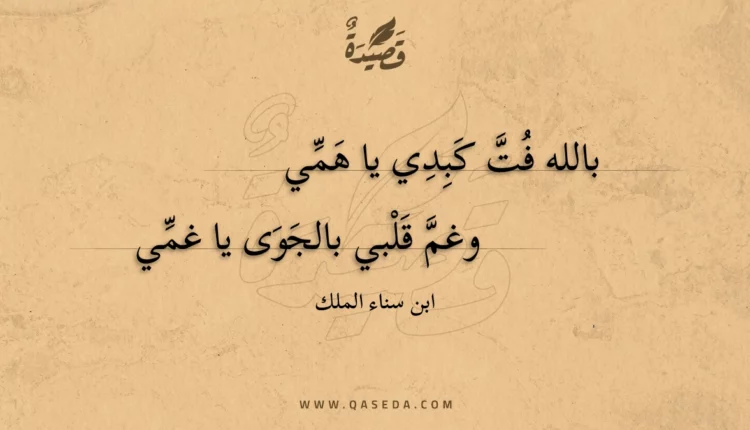 قَصِيدَةٌ
بالله فُتَّ كَبِدِي يا هَمِّي
وغمَّ قَلْبي بالجَوَى يا غمِّي
ابن سناء الملك
WWW.QASEDA.COM